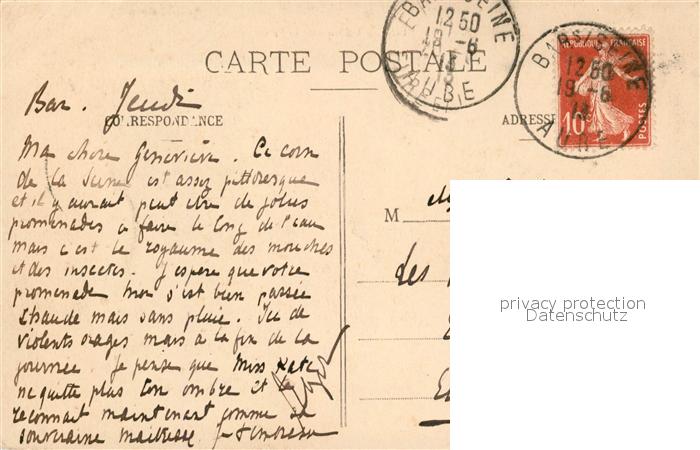 CARTE POSTALE
BAR S/SEINE
12 50
19 -6
AUBE
BAR S/SEINE
12 50
19 -6
13
AUBE
REPUBLIQUE FRANÇAISE
10c
POSTES
Bar. Jeudi
CORRESPONDANCE
ADRESSE
Ma chère Geneviève. Ce coin
de la Seine est assez pittoresque
et il y aurait peut être de jolies
promenades à faire le long de l'eau
mais c'est le royaume des mouches
et des insectes. J'espère que votre
promenade s'est bien passée
chaude mais sans pluie. Ici de
violents orages mais à la fin de la
journée. Je pense que Miss Kate
ne quitte plus ton ombre et te
reconnait maintenant comme sa
souveraine maitresse
M
les
privacy protection
Datenschutz